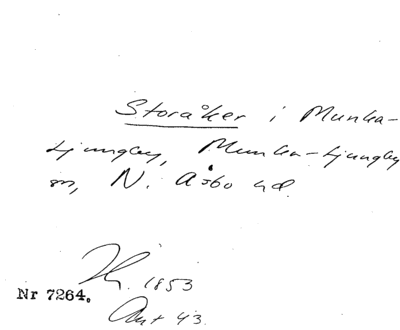 Storåker i Munka-
Ljungby, Munka-Ljungby
sn, N. Åsbo hd.
1853
Nr 7264.
43.